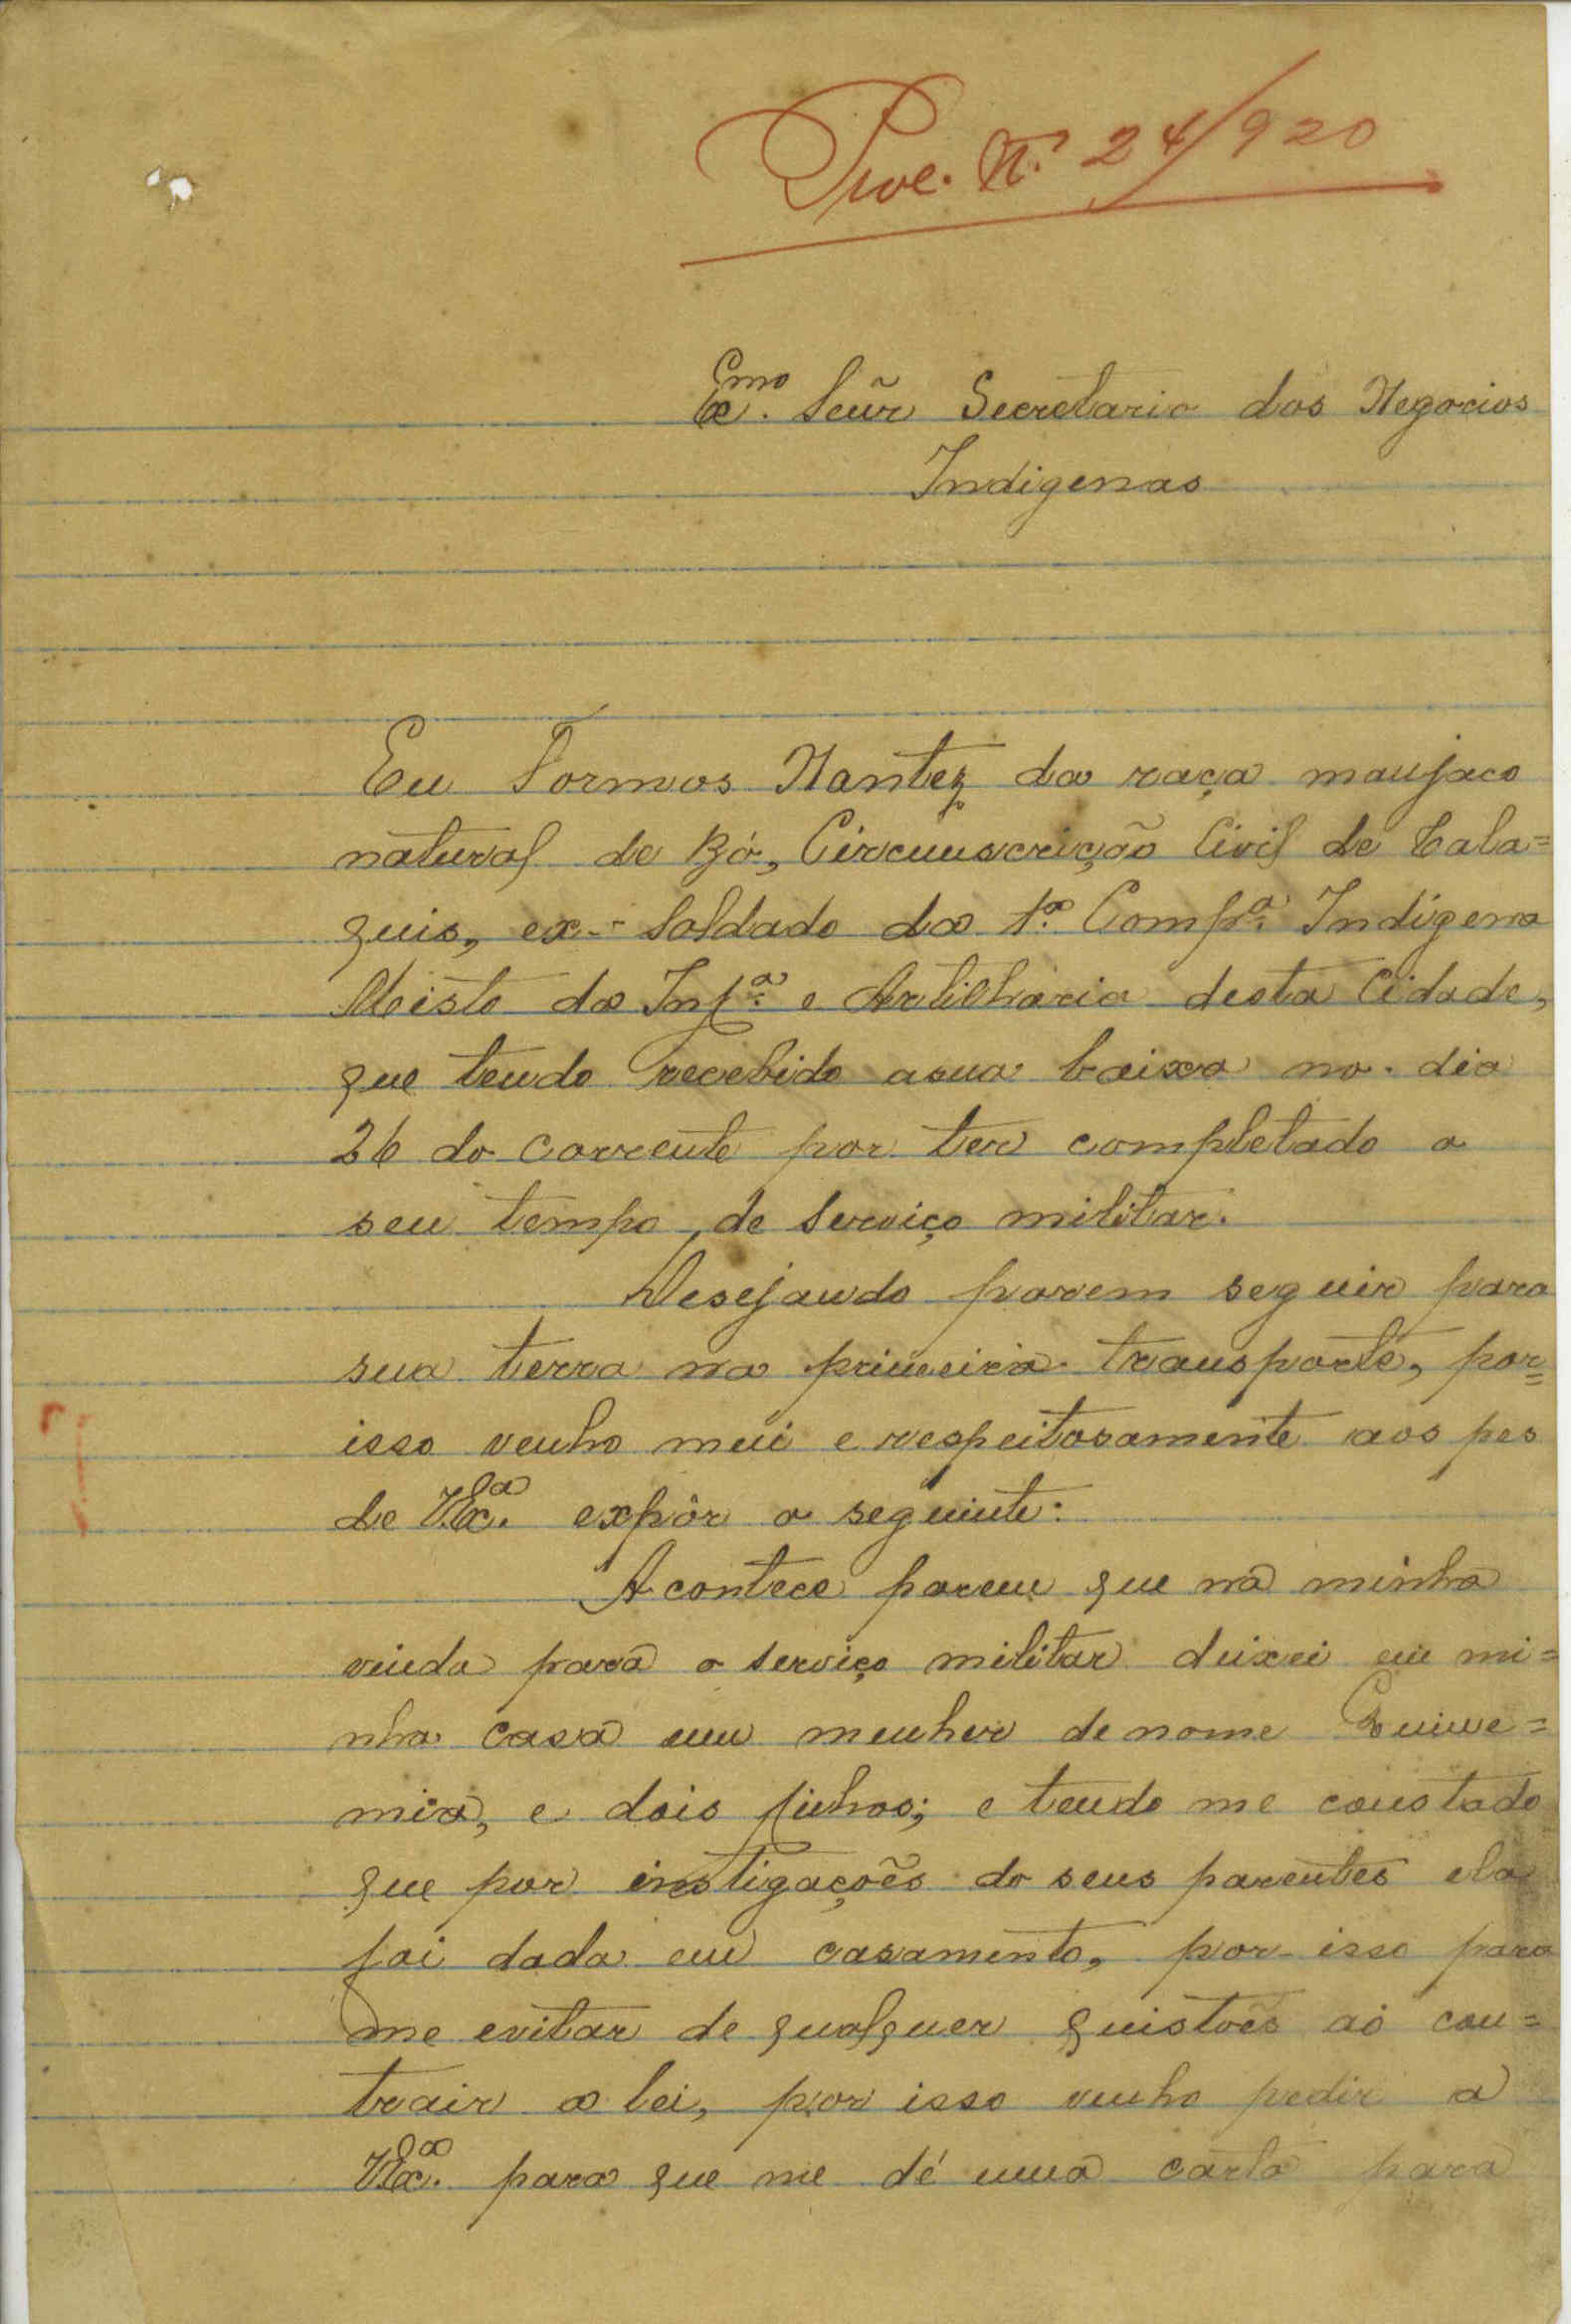 Proc. N.º 24/920
Exmo. Senr Secretario dos Negocios
Indigenas
Eu Tormos Nantez da raça manjaco
natural de Bó, Circunscrição Civil de Cala=
quis, ex-soldado da 1.ª Comp.ª Indigena
Mista da Inf.ª e Artilharia desta Cidade,
que tendo recebido asua baixa no dia
26 do corrente por ter completado o
seu tempo de serviço militar.
Desejando porem seguir para
sua terra na primeira transporte, por=
isso venho mui e respeitosamente aos pes
de V.Ex.ª expôr o seguinte:
Acontece porem que na minha
vinda para o serviço militar deixei em mi=
nha casa um meuher de nome
mia, e dois fiuhos; e tendo me constado
que por instigações do seus parentes ela
foi dada em casamento, por isso para
me evitar de qualquer quistões ao con=
trair a lei, por isso venho pedir a
V.Ex.ª para que me dé uma carta para